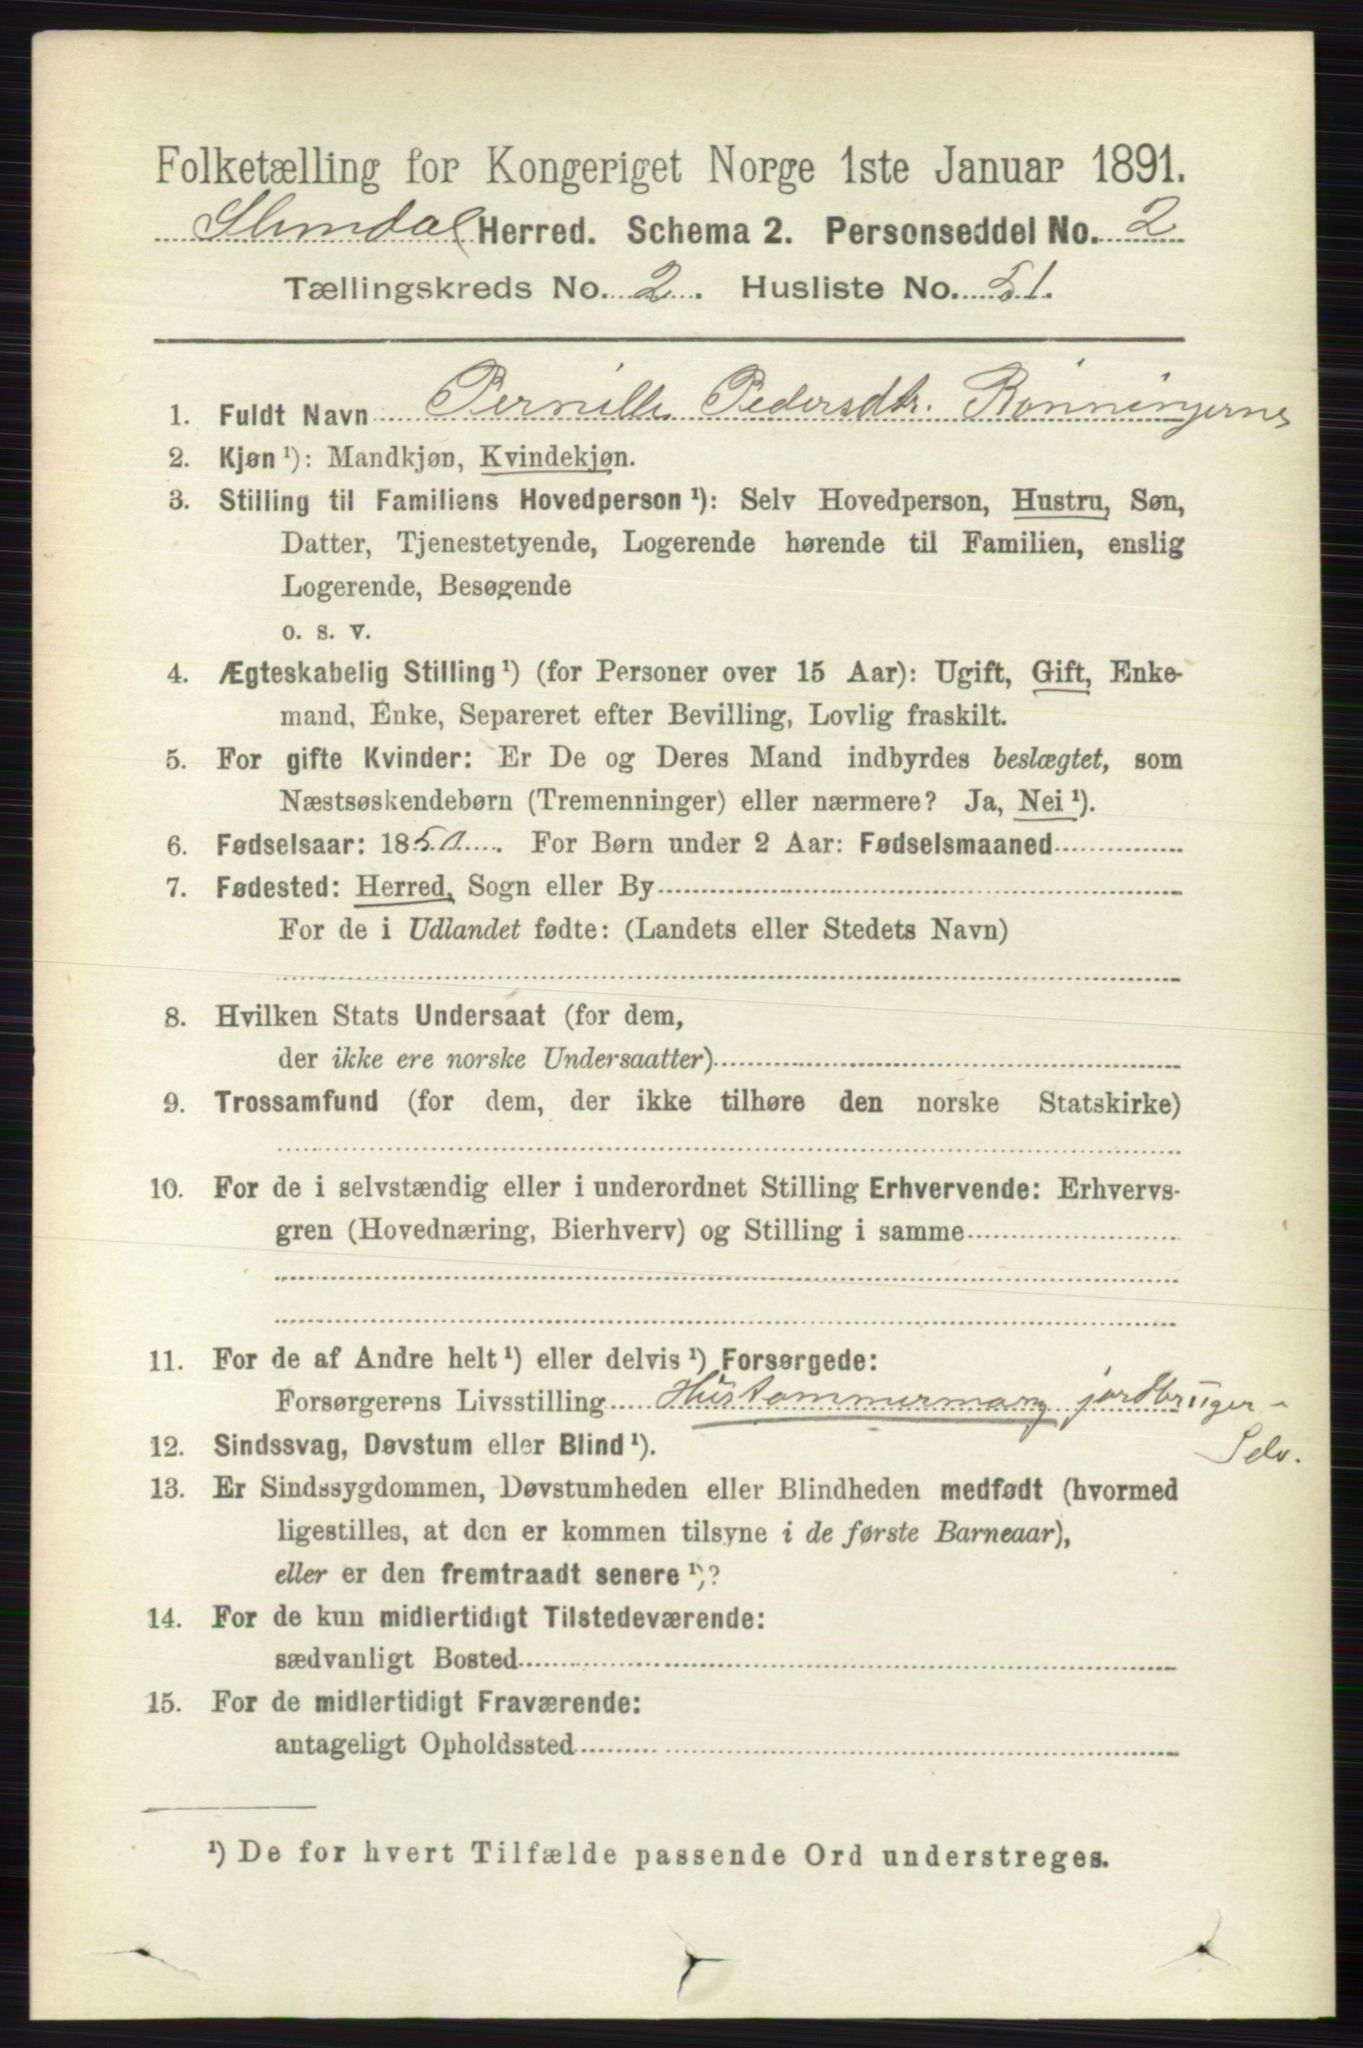 Folketælling for Kongeriget Norge 1ste Januar 1891.
Herred. Schema 2. Personseddel No. 2
Tællingskreds No. 2. Husliste No. 51.
1. Fuldt Navn Pernille Pedersdtr. Rönningerne
2. Kjøn ¹): Mandkjøn, Kvindekjøn.
3. Stilling til Familiens Hovedperson ¹): Selv Hovedperson, Hustru, Søn,
Datter, Tjenestetyende, Logerende hørende til Familien, enslig
Logerende, Besøgende
o. s. v.
4. Ægteskabelig Stilling ¹) (for Personer over 15 Aar): Ugift, Gift, Enke-
mand, Enke, Separeret efter Bevilling, Lovlig fraskilt.
5. For gifte Kvinder: Er De og Deres Mand indbyrdes beslægtet, som
Næstsøskendebørn (Tremenninger) eller nærmere? Ja, Nei ¹).
6. Fødselsaar: 1850. For Børn under 2 Aar: Fødselsmaaned
7. Fødested: Herred, Sogn eller By
For de i Udlandet fødte: (Landets eller Stedets Navn)
8. Hvilken Stats Undersaat (for dem,
der ikke ere norske Undersaatter)
9. Trossamfund (for dem, der ikke tilhøre den norske Statskirke)
10. For de i selvstændig eller i underordnet Stilling Erhvervende: Erhvervs-
gren (Hovednæring, Bierhverv) og Stilling i samme
11. For de af Andre helt ¹) eller delvis ¹) Forsørgede:
Forsørgerens Livsstilling Hustømmermand jordbrüger -
Selv.
12. Sindssvag, Døvstum eller Blind ¹).
13. Er Sindssygdommen, Døvstumheden eller Blindheden medfødt (hvormed
ligestilles, at den er kommen tilsyne i de første Barneaar),
eller er den fremtraadt senere ¹)?
14. For de kun midlertidigt Tilstedeværende:
sædvanligt Bosted
15. For de midlertidigt Fraværende:
antageligt Opholdssted
¹) De for hvert Tilfælde passende Ord understreges.